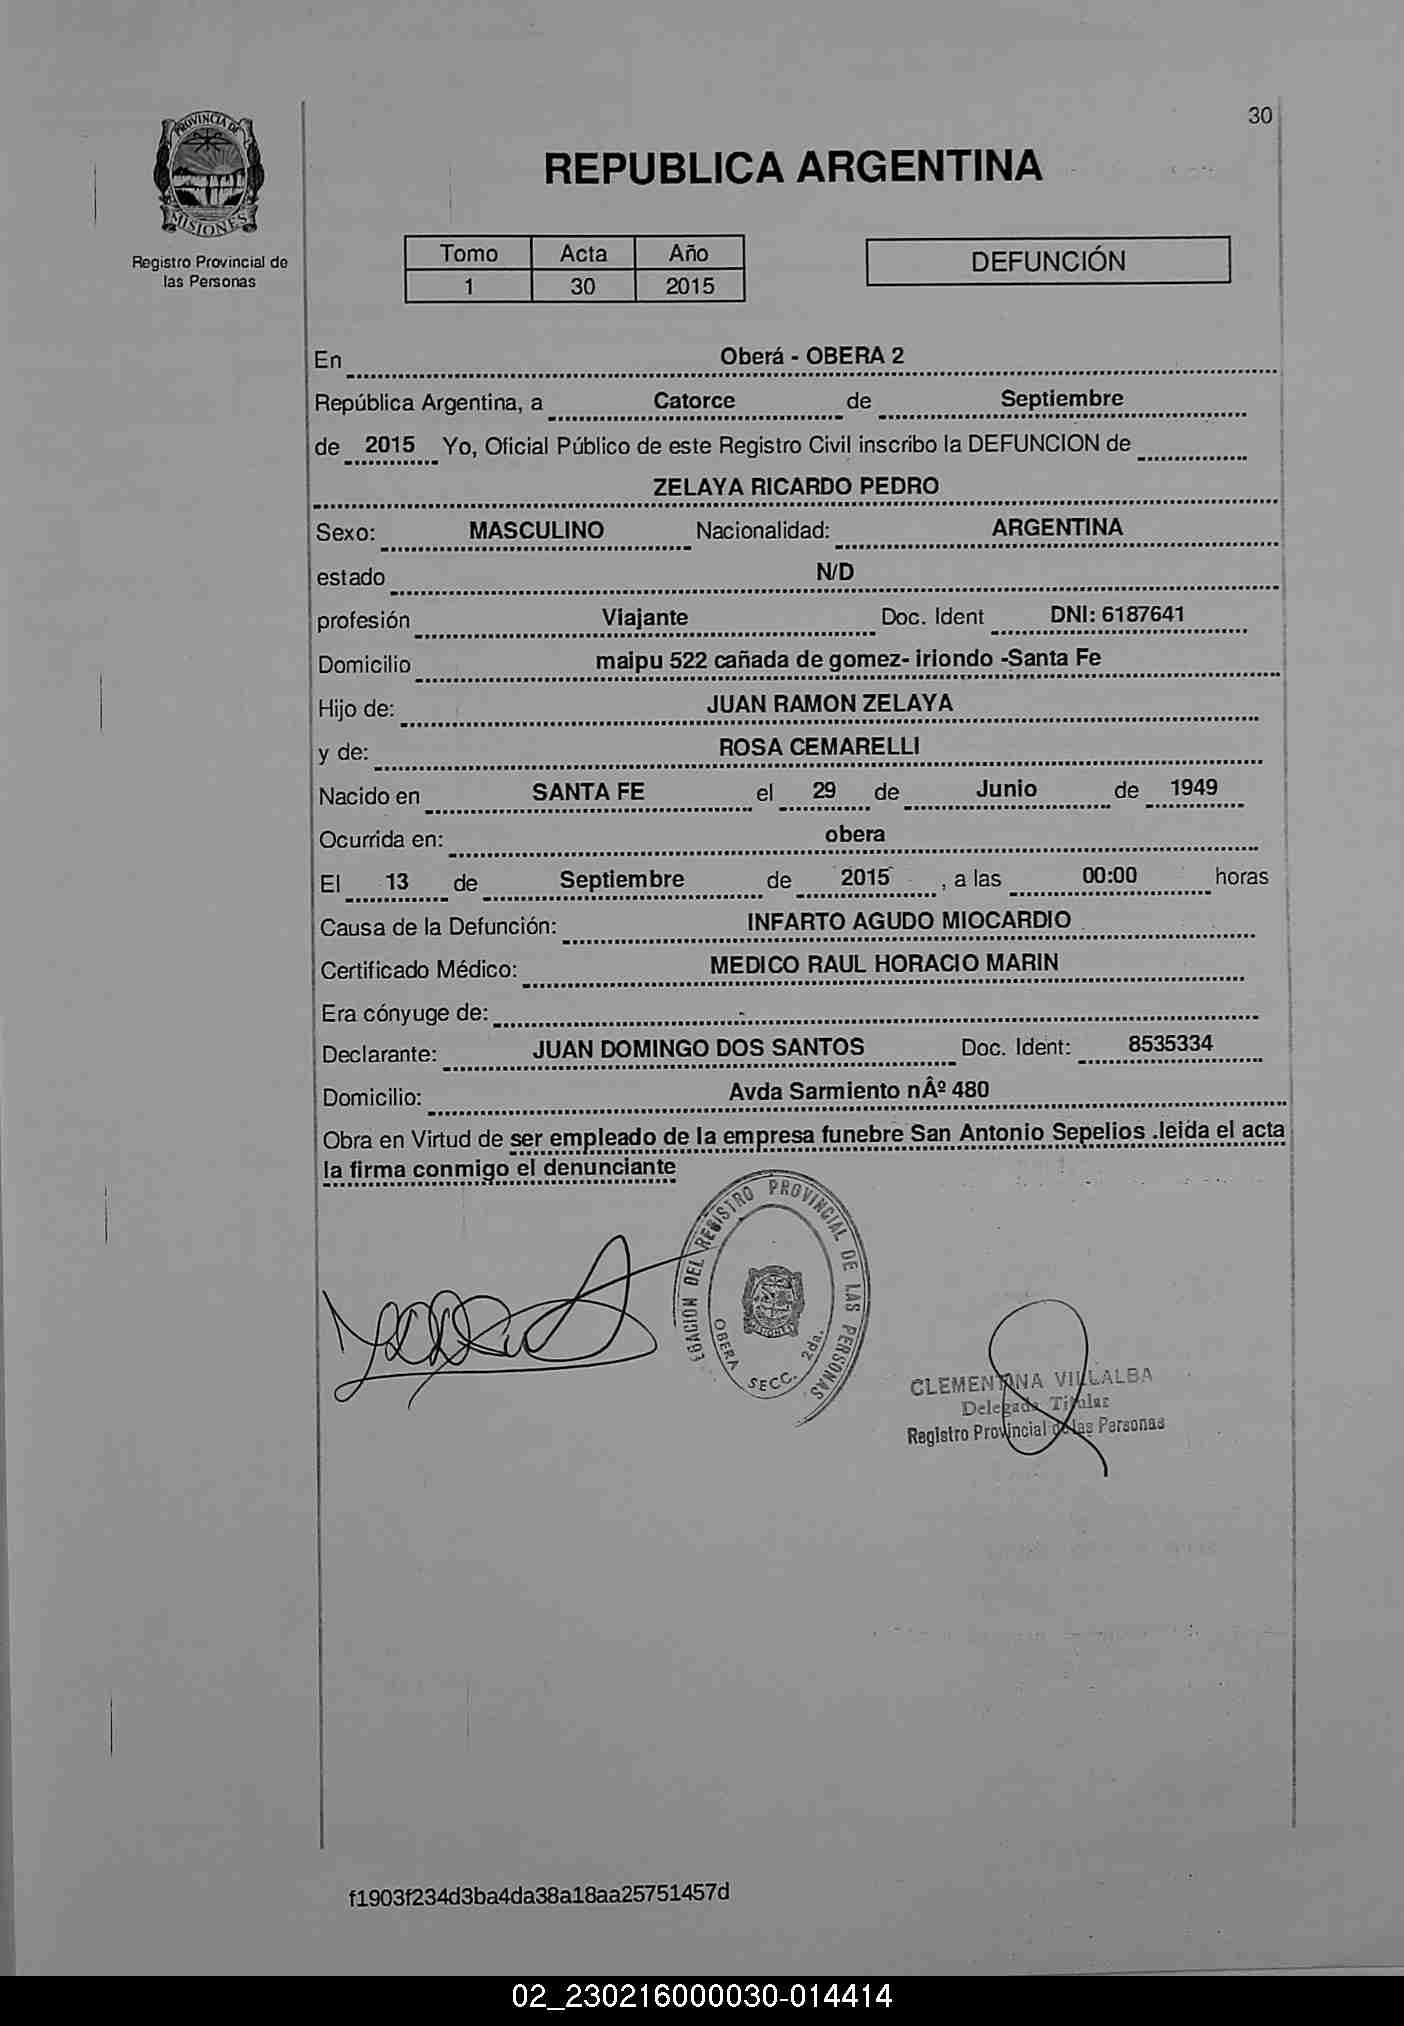 30
PROVINCIA DE
MISIONES
Registro Provincial de
las Personas
REPUBLICA ARGENTINA
Tomo Acta Año
1 30 2015
DEFUNCIÓN
En Oberá - OBERA 2
República Argentina, a Catorce de Septiembre
de 2015 Yo, Oficial Público de este Registro Civil inscribo la DEFUNCION de
ZELAYA RICARDO PEDRO
Sexo: MASCULINO Nacionalidad: ARGENTINA
estado N/D
profesión Viajante Doc. Ident DNI: 6187641
Domicilio maipu 522 cañada de gomez- iriondo -Santa Fe
Hijo de: JUAN RAMON ZELAYA
y de: ROSA CEMARELLI
Nacido en SANTA FE el 29 de Junio de 1949
Ocurrida en: obera
El 13 de Septiembre de 2015 , a las 00:00 horas
Causa de la Defunción: INFARTO AGUDO MIOCARDIO
Certificado Médico: MEDICO RAUL HORACIO MARIN
Era cónyuge de: -
Declarante: JUAN DOMINGO DOS SANTOS Doc. Ident: 8535334
Domicilio: Avda Sarmiento nÂº 480
Obra en Virtud de ser empleado de la empresa funebre San Antonio Sepelios .leida el acta
la firma conmigo el denunciante
DEL REGISTRO PROVINCIAL DE LAS PERSONAS
OBERA SECC. 2da.
MISIONES
CLEMENTINA VILLALBA
Delegada Titular
Registro Provincial de las Personas
f1903f234d3ba4da38a18aa25751457d
02_230216000030-014414